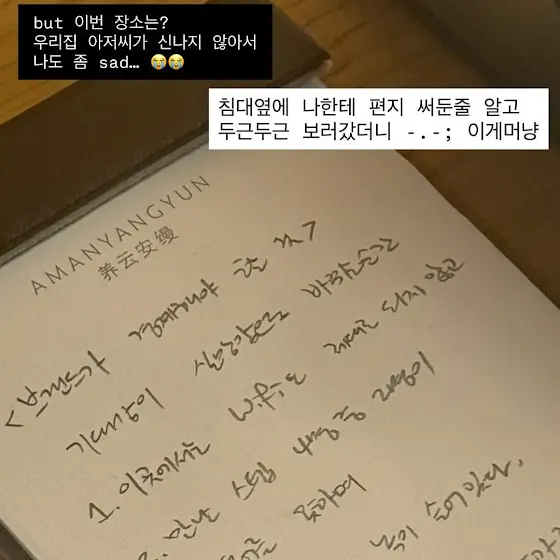 but 이번 장소는?
우리집 아저씨가 신나지 않아서
나도 좀 sad… 😭😭
침대옆에 나한테 편지 써둔줄 알고
두근두근 보러갔더니 -.-; 이게머냥
AMANYANGYUN
养云安缦
<브랜드가 경계해야 할 것>
기대감이 실망감으로 바뀌는 순간
1. 이곳에서는 Wifi는 제대로 되지 않고
만난 스텝 4명 중 2명이
못하며
녹이 슬어있다.